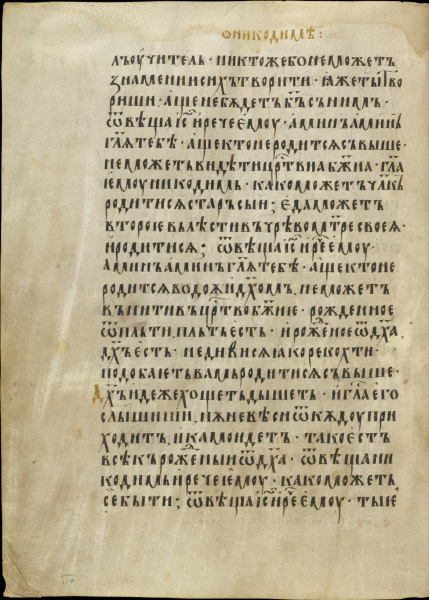 ѡ никодимѣ :
лъ оучитель · никтоже бо не можетъ
знамении сихъ творити · ꙗже ты тво
риши · аще не бѫдетъ б҃ъ съ нимь ·
ѿвѣща і҃с и рече емоу · аминъ аминь
гл҃ѧ тебѣ · аще кто не родитсѧ съвыше ·
не можетъ видѣти цр҃твиа б҃жиа · гл҃а
емоу никодимь · како можетъ чл҃къ
родитисѧ старъ сыи ; еда можетъ
второе вълѣсти въ чрѣво мт҃ре своеѧ ·
и родитисѧ ; ѿвѣща і҃с и рч҃е емоу ·
аминъ аминъ гл҃ѧ тебѣ · аще кто не
родитсѧ водоѧ и дх҃омъ, не можетъ
вънити въ цр҃тво б҃жие · рожденное
ѿ плъти, плъть естъ · и рожеⷩ҇ое ѿ дх҃а
дх҃ъ естъ · не дивисѧ ꙗко рекохъ ти ·
подобаетъ вамъ родитисѧ съвыше ·
дх҃ъ идеже хощетъ дышетъ · и гл҃а его
слышиши, нѫ не вѣси ѿкѫдоу при
ходитъ, и камо идетъ · тако естъ
всѣкъ рожеⷩ҇ыи ѿ дх҃а · ѿвѣща ни
кодимь и рече емоу · како можетъ
се быти ; ѿвѣща і҃с и рч҃е емоу · ты ѥ